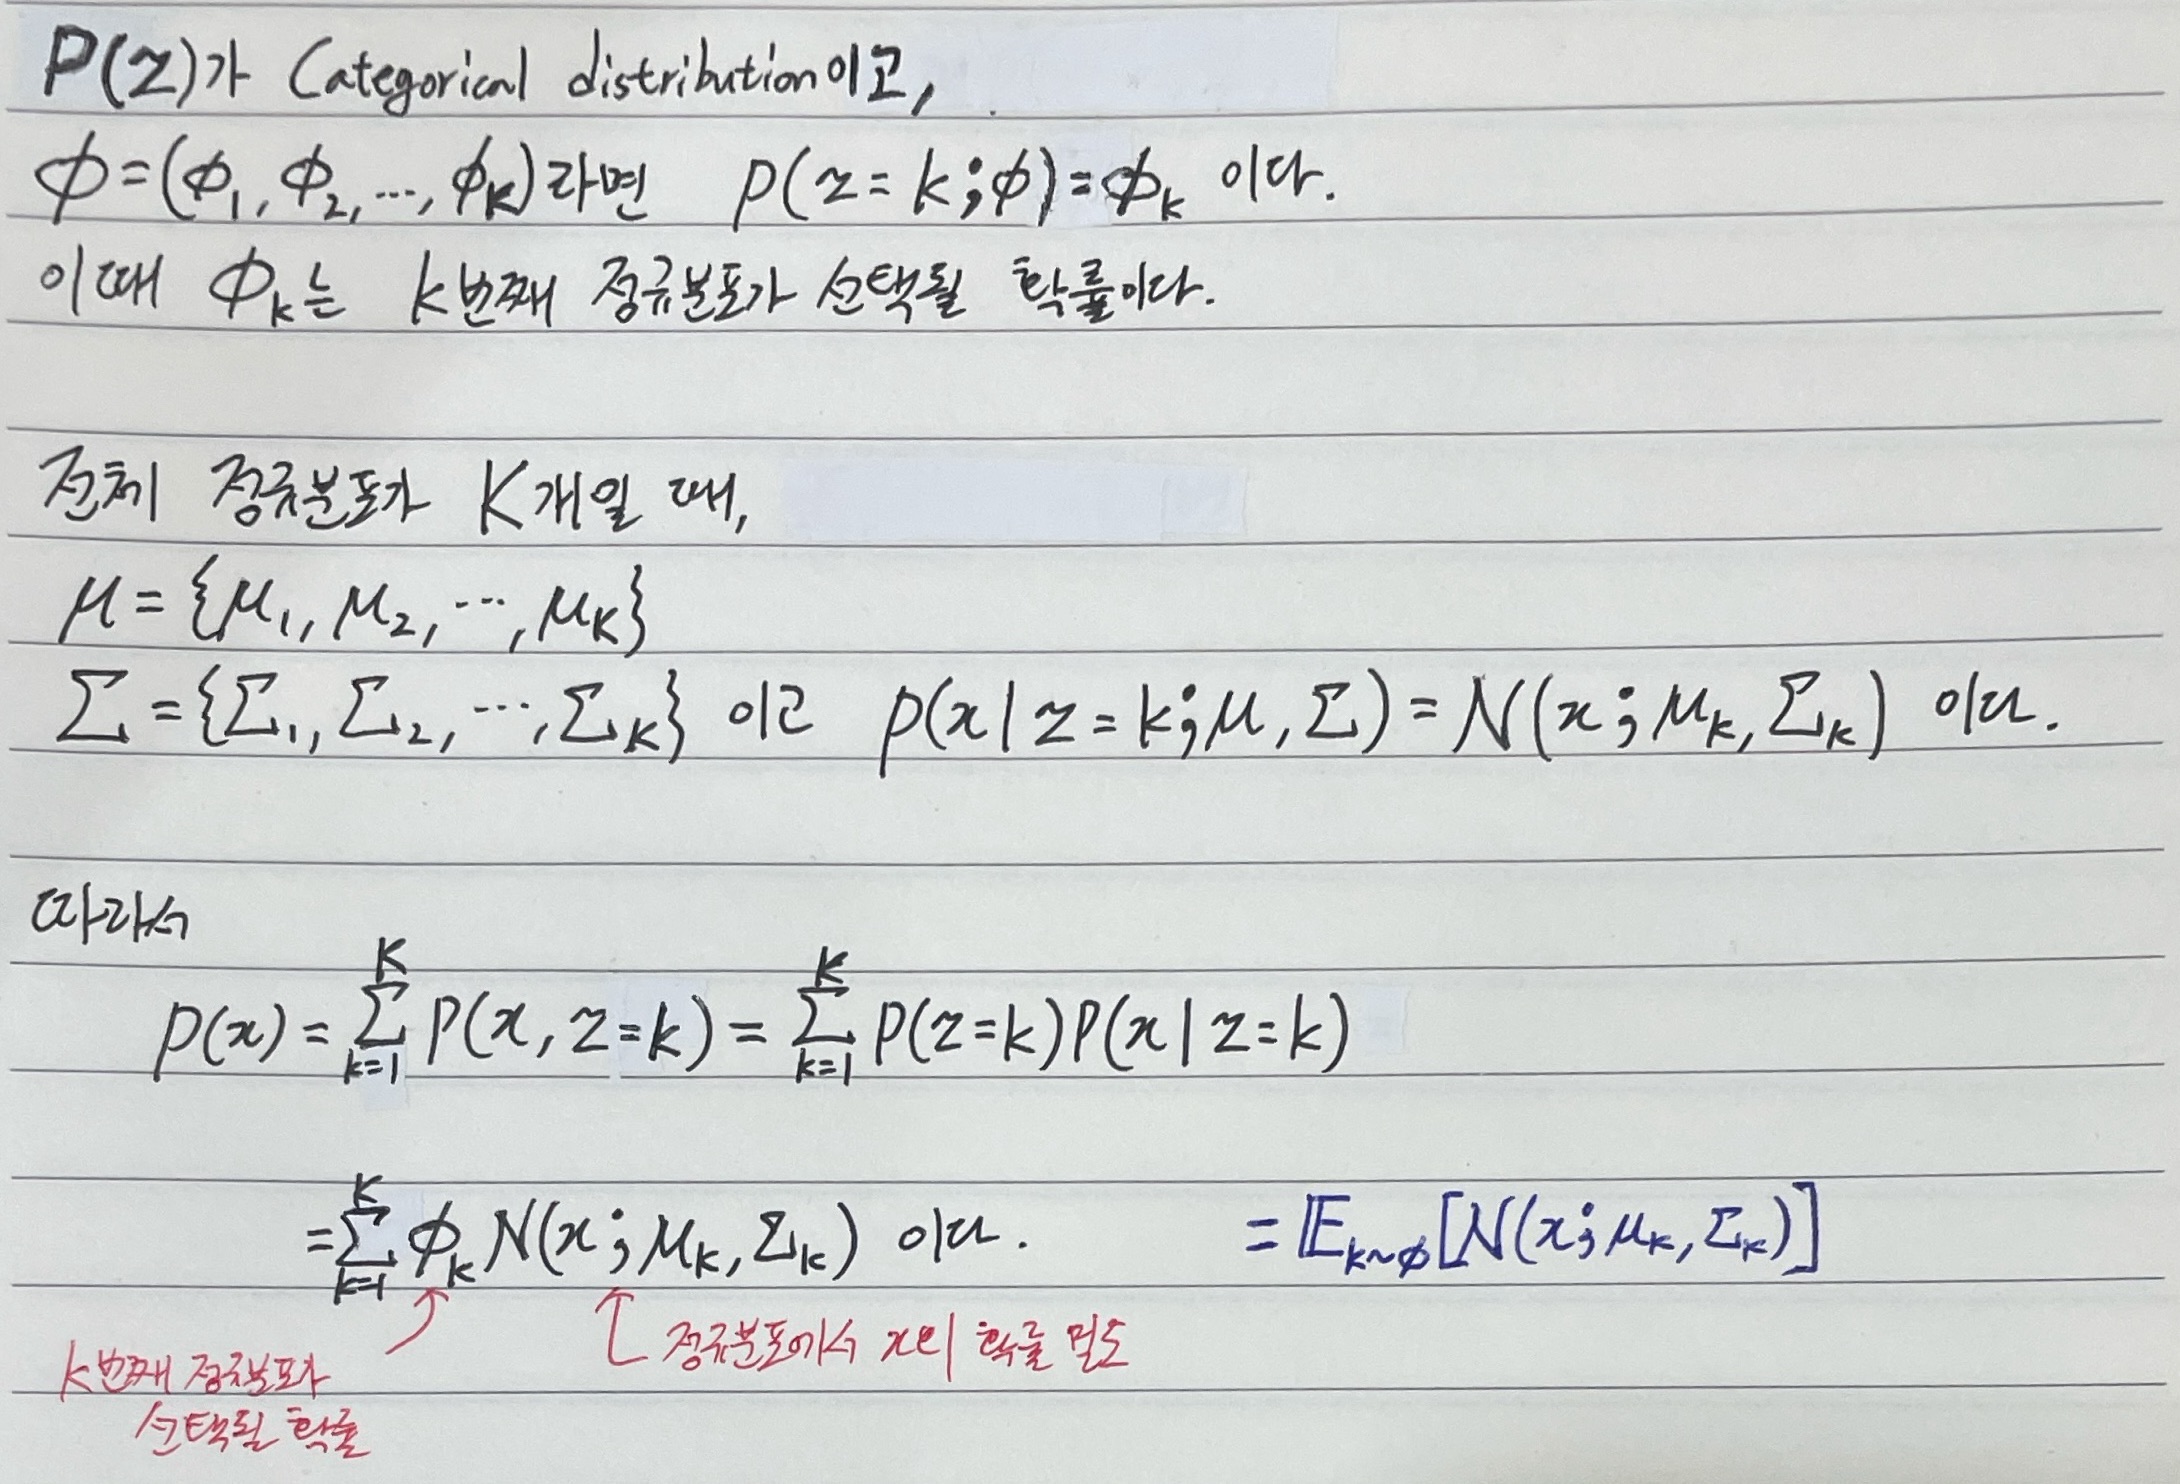 P(z)가 Categorical distribution이고,
ϕ=(ϕ₁, ϕ₂, ..., ϕ_K)라면 p(z=k;ϕ)=ϕ_k 이다.
이때 ϕ_k는 k번째 정규분포가 선택될 확률이다.
전체 정규분포가 K개일 때,
μ={μ₁, μ₂, ..., μ_K}
Σ={Σ₁, Σ₂, ..., Σ_K} 이고 p(x|z=k;μ,Σ)=N(x;μ_k,Σ_k) 이다.
따라서
p(x)=∑_{k=1}^{K} P(x, z=k)=∑_{k=1}^{K} P(z=k)P(x|z=k)
=∑_{k=1}^{K} ϕ_k N(x;μ_k,Σ_k) 이다. =𝔼_{k~ϕ}[N(x;μ_k,Σ_k)]
정규분포에서 x의 확률 밀도
k번째 정규분포가
선택될 확률